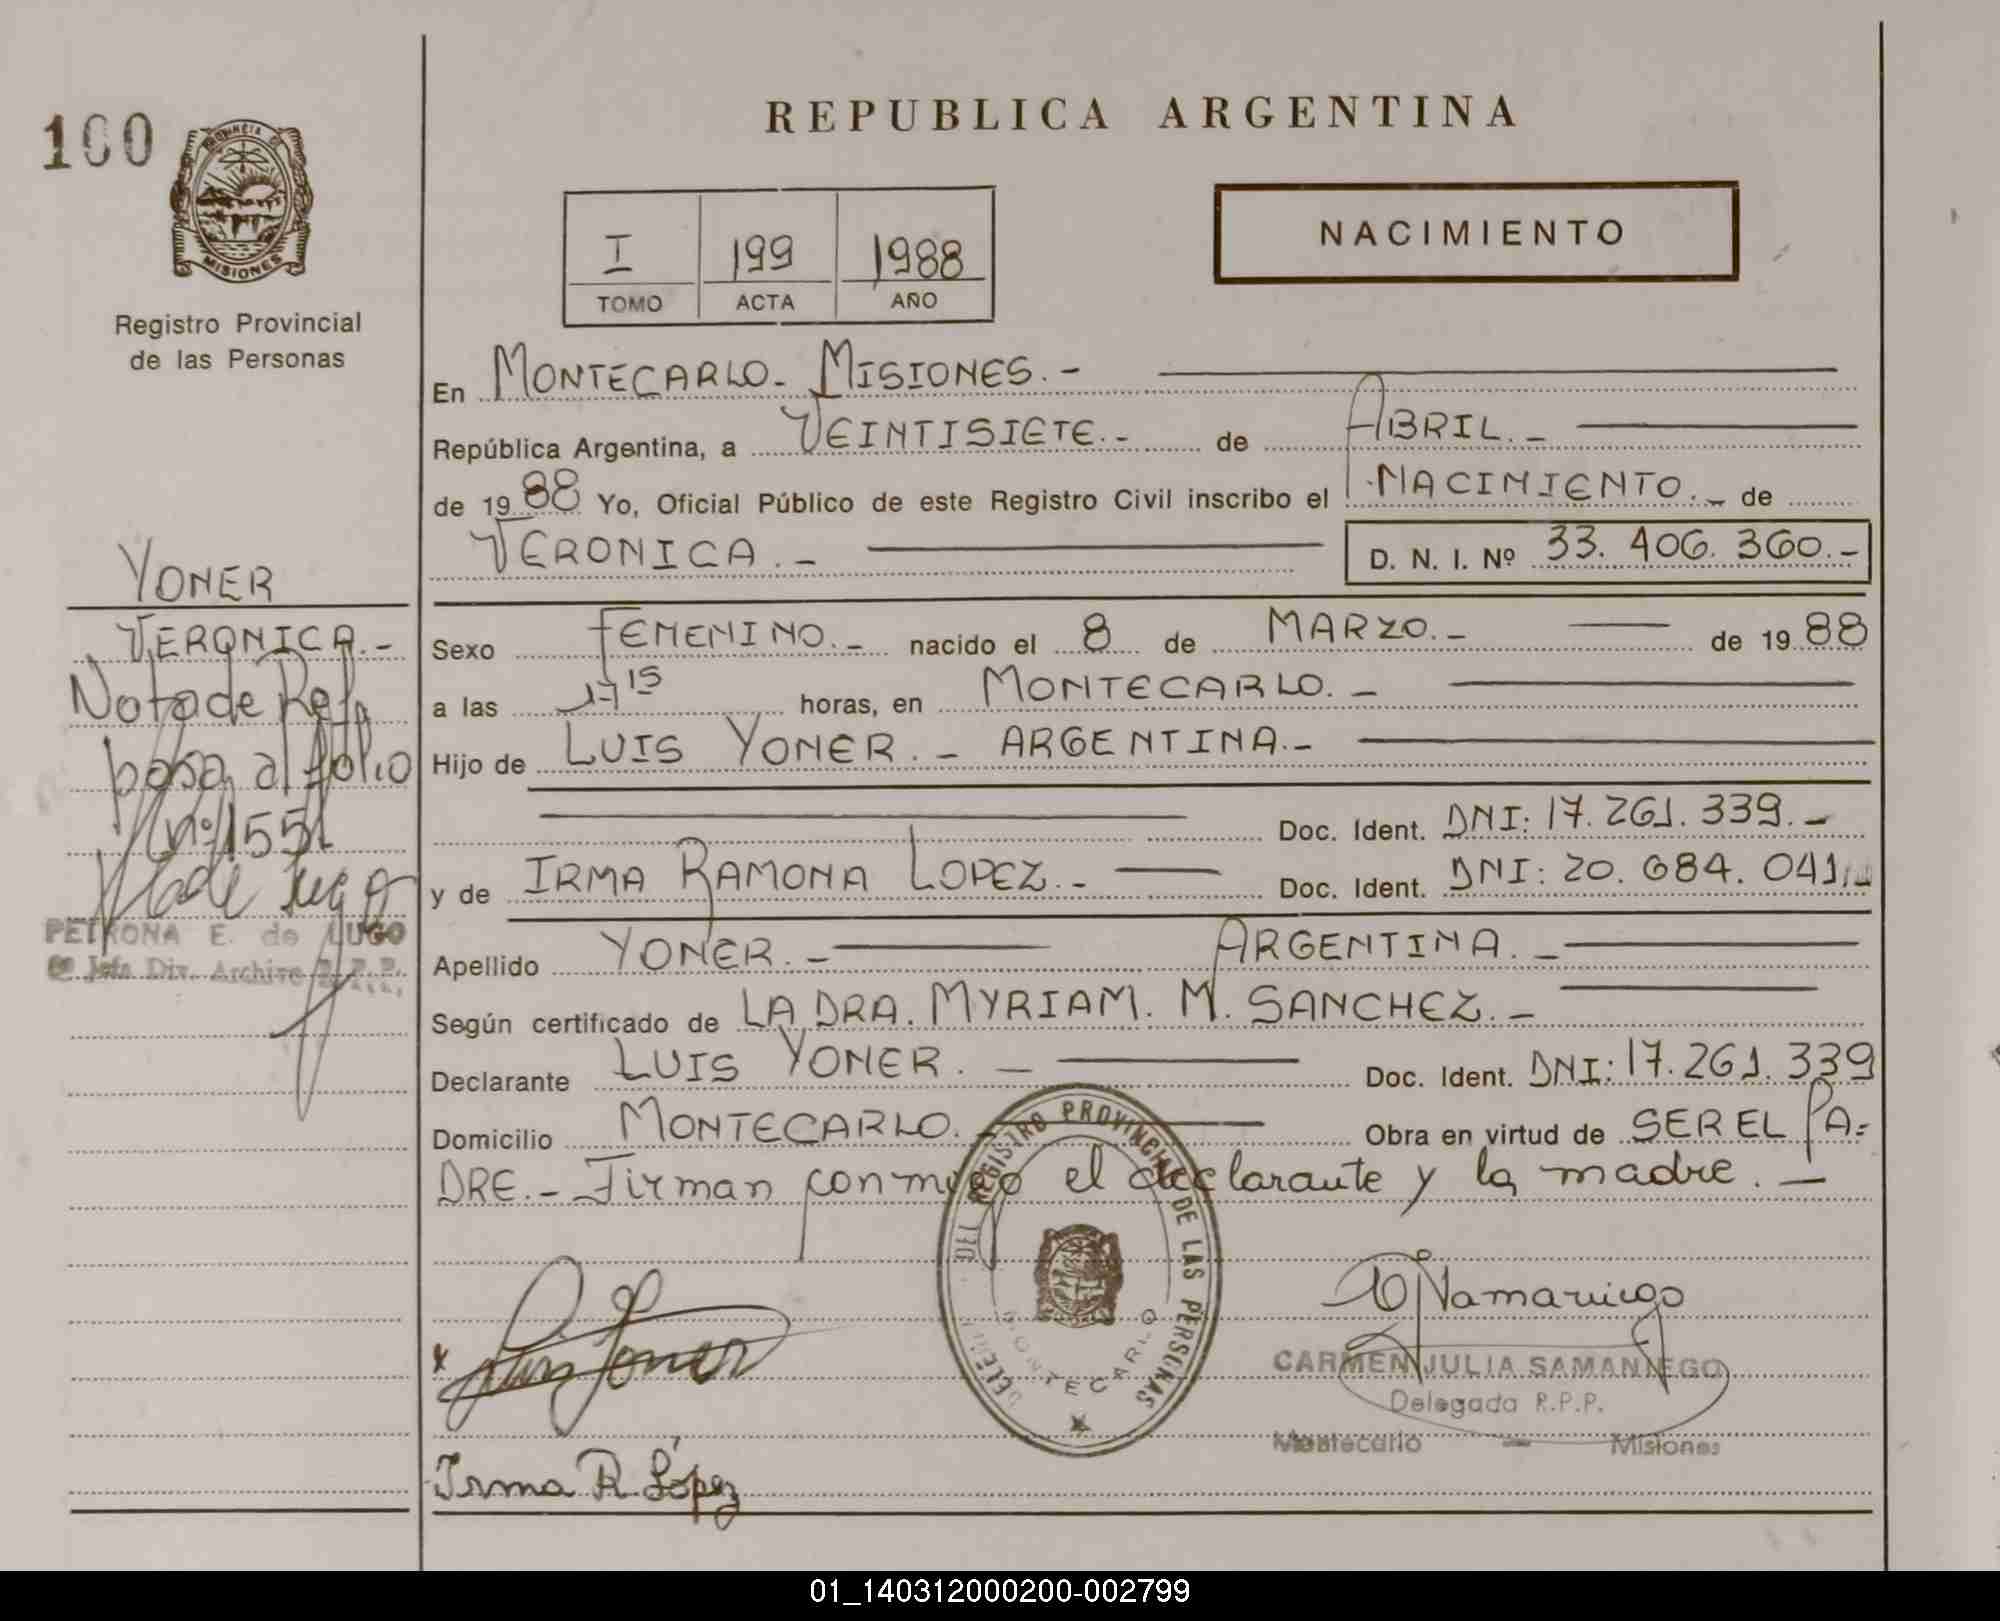 100
PROVINCIA DE
MISIONES
Registro Provincial
de las Personas
REPUBLICA ARGENTINA
I 199 1988
TOMO ACTA AÑO
NACIMIENTO
En MONTECARLO- MISIONES.-
República Argentina, a VEINTISIETE.- de ABRIL.-
de 1988 Yo, Oficial Público de este Registro Civil inscribo el NACIMIENTO.- de
VERONICA.- D. N. I. Nº 33.406.360.-
YONER
VERONICA.-
Nota de Ref.
pasa al folio
nº 155
PETRONA E. de LUGO
Jefe Div. Archivo R.P.P.
Sexo FEMENINO.- nacido el 8 de MARZO.- de 1988
a las 17 15 horas, en MONTECARLO.-
Hijo de LUIS YONER.- ARGENTINA.-
Doc. Ident. DNI: 17.261.339.-
y de IRMA RAMONA LOPEZ.- Doc. Ident. DNI: 20.684.041.-
Apellido YONER.- ARGENTINA.-
Según certificado de LA DRA. MYRIAM. M. SANCHEZ.-
Declarante LUIS YONER.- Doc. Ident. DNI: 17.261.339
Domicilio MONTECARLO.- Obra en virtud de SER EL PA=
DRE.- Firman conmigo el declarante y la madre.-
DEL REGISTRO PROVINCIAL DE LAS PERSONAS
MONTECARLO
x Luis Yoner
CARMEN JULIA SAMANIEGO
Delegada R.P.P.
Montecarlo - Misiones
Irma R. López
01_140312000200-002799